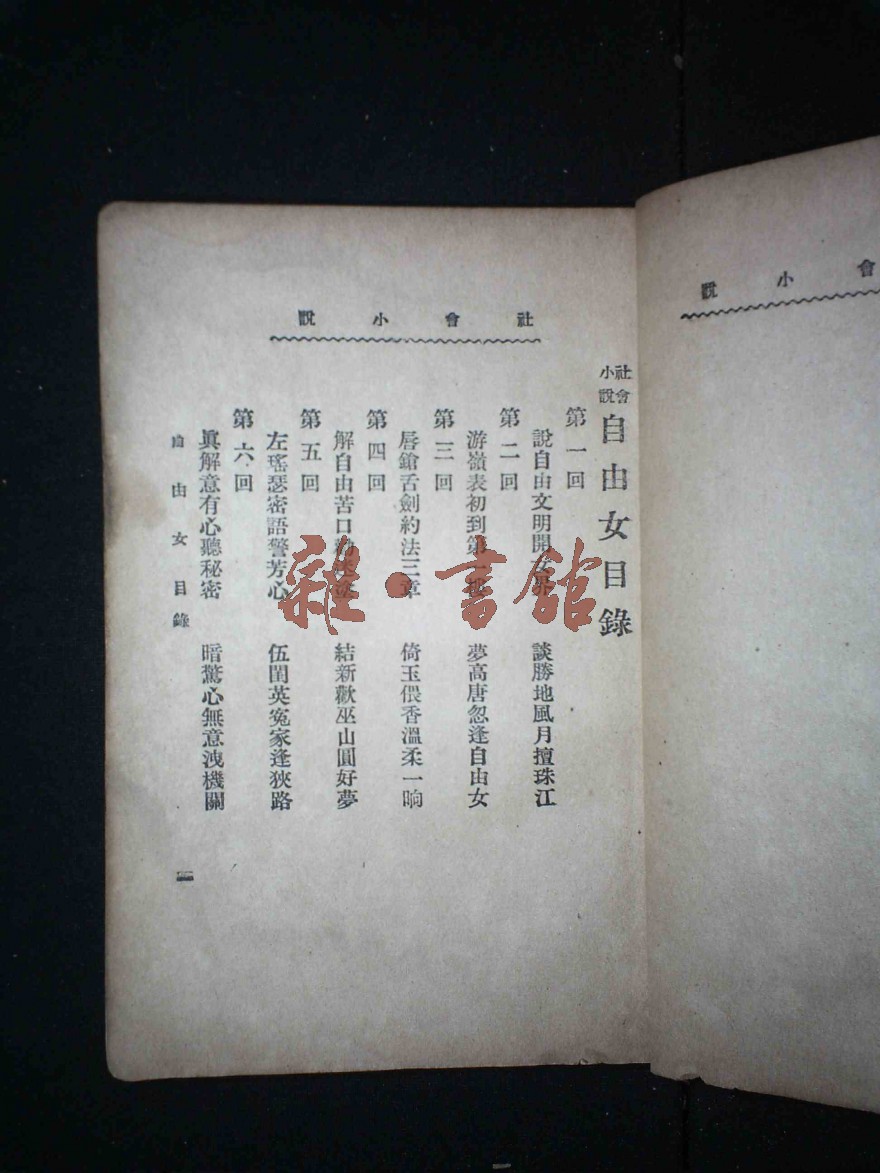 會小說
社會小說
社會小說 自由女目錄
第一回
說自由文明開女界 談勝地風月擅珠江
第二回
游嶺表初到第一樓 夢高唐忽逢自由女
第三回
唇鎗舌劍約法三章 倚玉偎香溫柔一晌
第四回
解自由苦口勸迷途 結新歡巫山圓好夢
第五回
左瑤瑟密語警芳心 伍閨英冤家逢狹路
第六回
眞解意有心聽秘密 暗驚心無意洩機關
自由女目錄
雜·書館